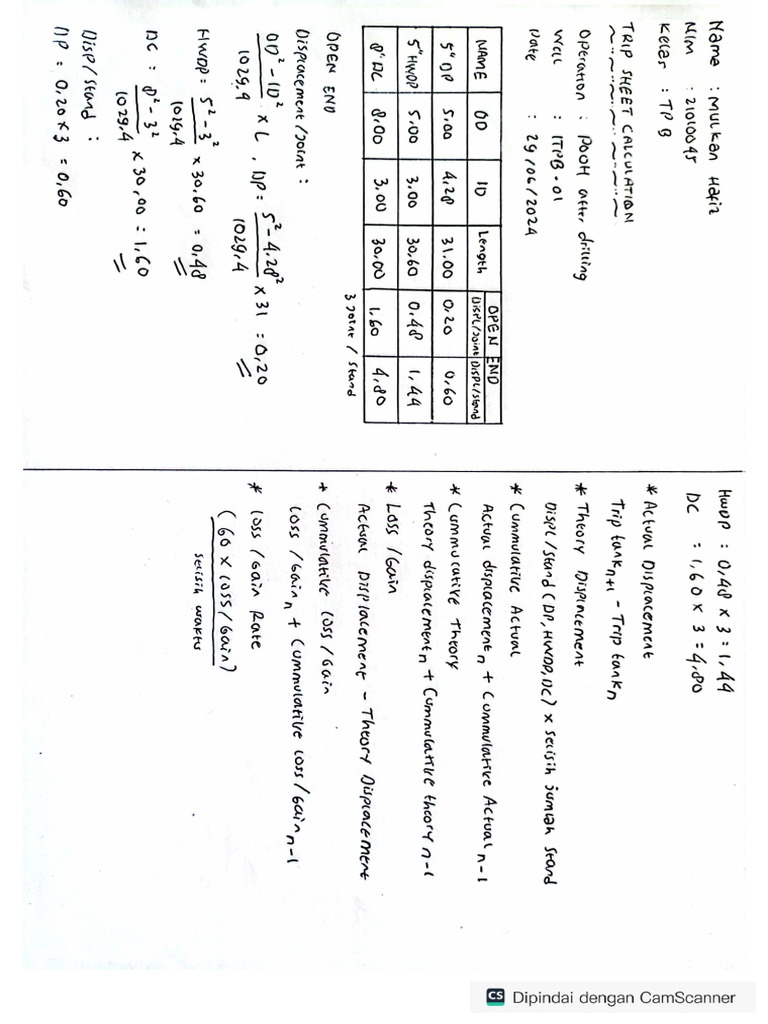 Name : Mulkan Hafiz
NIM : 21010045
Kelas : TP B
TRIP SHEET CALCULATION
Operation : POOH after drilling
Well : ITPB-01
Date : 29/06/2024
OPEN END
NAME OD ID Length Displ/Joint Displ/stand
5" DP 5,00 4,28 31.00 0,20 0,60
5" HWDP 5,00 3,00 30,60 0,48 1,44
8" DC 8.00 3,00 30.00 1,60 4,80
3 Joint / stand
OPEN END
Displacement/Joint :
OD² - ID² / 1029,4 x L , DP = 5² - 4,28² / 1029,4 x 31 = 0,20
HWDP = 5² - 3² / 1029,4 x 30,60 = 0,48
DC : 8² - 3² / 1029,4 x 30,00 = 1,60
Disp/stand :
DP = 0,20 x 3 = 0,60
HWDP = 0,48 x 3 = 1,44
DC = 1,60 x 3 = 4,80
* Actual Displacement
Trip tank n+1 - Trip tank n
* Theory Displacement
Displ/stand (DP, HWDP, DC) x selisih jumlah stand
* Cummulative Actual
Actual displacement n + Cummulative Actual n-1
* Cummulative Theory
Theory displacement n + Cummulative theory n-1
* Loss /Gain
Actual Displacement - Theory Displacement
* Cummulative loss / Gain
loss / Gain n + Cummulative loss/Gain n-1
* loss / Gain Rate
(60 x loss/Gain)
selisih waktu
CS Dipindai dengan CamScanner